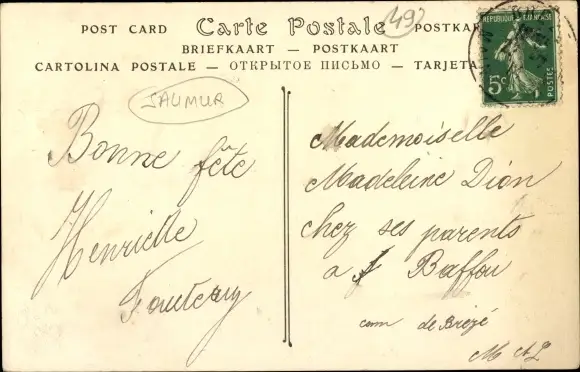 POST CARD Carte Postale POSTKA
BRIEFKAART — POSTKAART
CARTOLINA POSTALE — ОТКРЫТОЕ ПИСЬМО — TARJETA
49
REPUBLIQUE FRANÇAISE
5c
POSTES
SAUMUR
Bonne fête
Henriette
Mademoiselle
Madeleine Dion
chez ses parents
a Baffou
com de Brézé
M &L